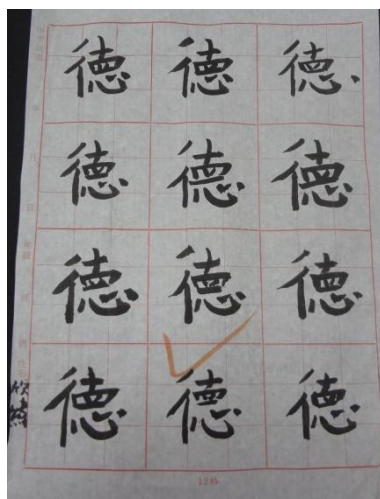 德 德 德
德 德 德
德 德 德
德 德 德